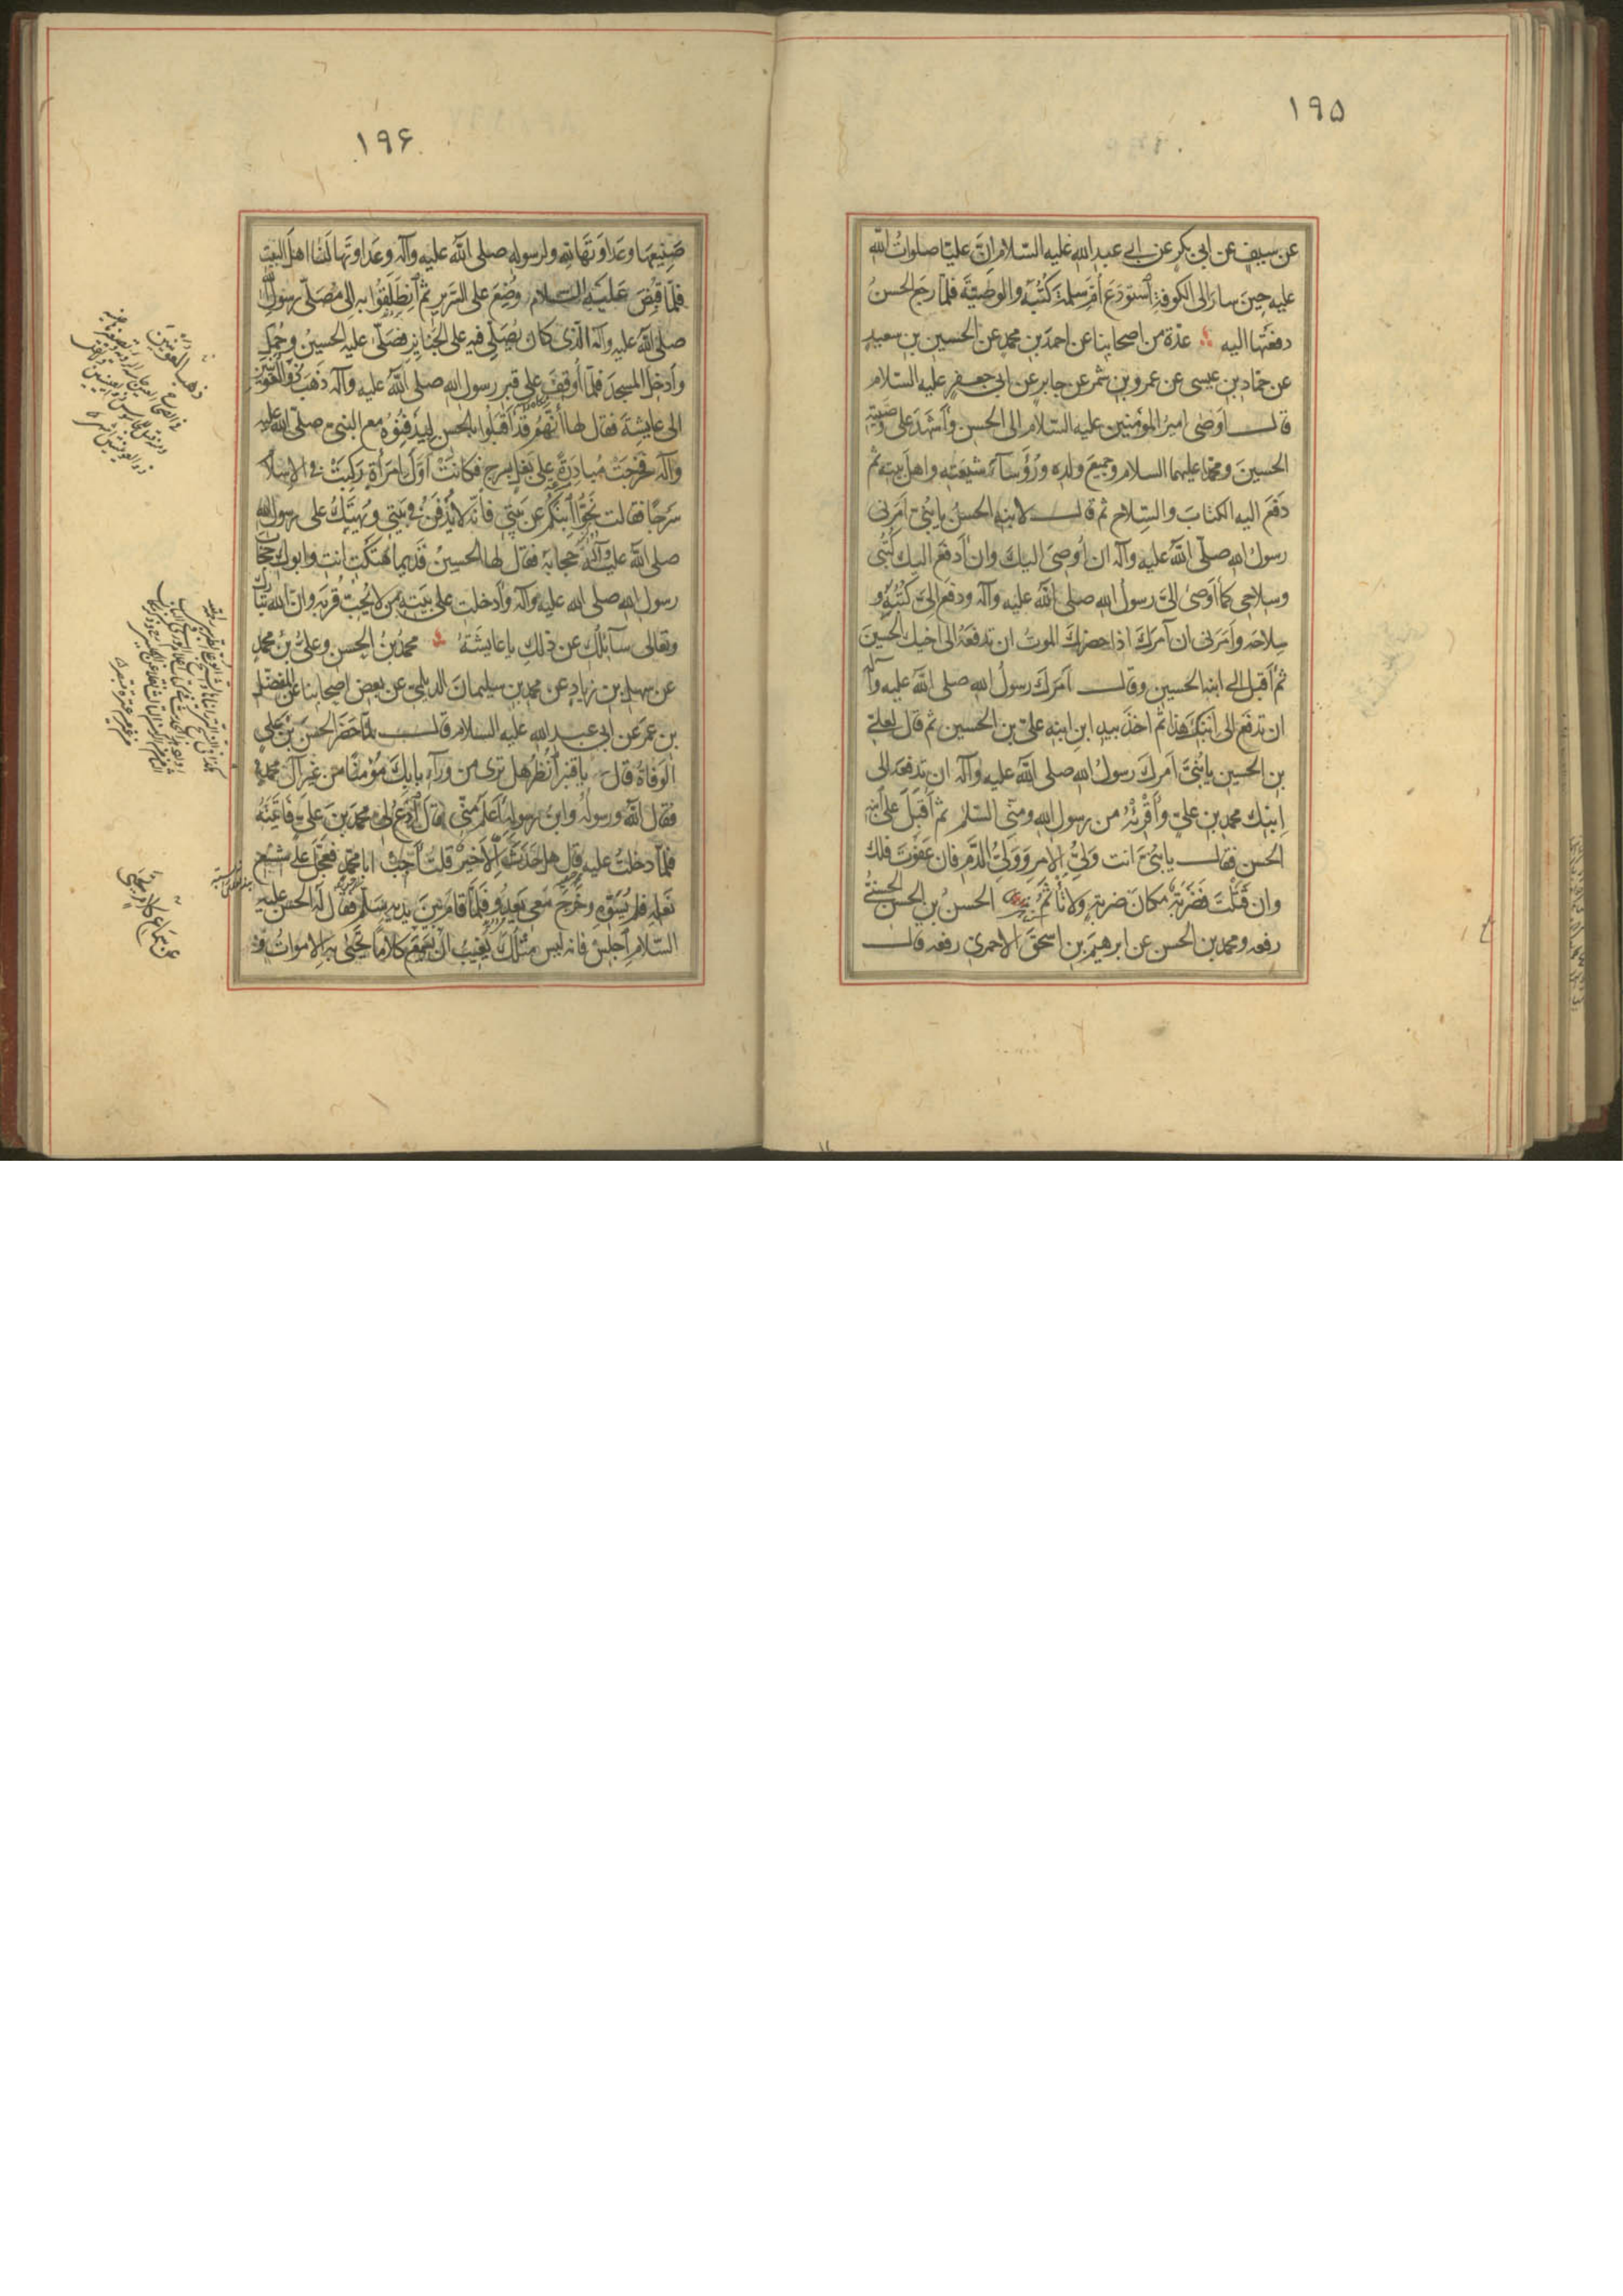 ١٩۵
عن سيف عن ابى بكر عن ابى عبد الله عليه السّلام انّ عليّا صلوات الله
عليه حين سار الى الكوفة استودع أمّ سلمة كتبه والوصيّة فلمّا رجع الحسن
دفعتها اليه عدّة من اصحابنا عن احمد بن محمد عن الحسين بن سعيد
عن حمّاد بن عيسى عن عمرو بن شمر عن جابر عن ابى جعفر عليه السّلام
قال اوصى امير المؤمنين عليه السّلام الى الحسن وأشهد على وصيّته
الحسين ومحمّدا عليهما السلام وجميع ولده ورؤسآء شيعته واهل بيته ثم
دفع اليه الكتاب والسّلاح ثم قال لابنه الحسن يا بنىّ امرنى
رسول الله صلّى الله عليه وآله ان أوصى اليك وان أدفع اليك كتبى
وسلاحى كما أوصى الىّ رسول الله صلى الله عليه وآله ودفع الىّ كتبه و
سلاحه وأمرنى ان آمرك اذا حضرك الموت ان تدفعه الى اخيك الحسين
ثم أقبل الى ابنه الحسين وقال امرك رسول الله صلى الله عليه وآله
ان تدفع الى ابنك هذا ثم اخذ بيد ابن ابنه علىّ بن الحسين ثم قال لعلىّ
بن الحسين يا بنىّ امرك رسول الله صلى الله عليه وآله ان تدفعه الى
ابنك محمد بن علىّ وأقرئه من رسول الله ومنّى السّلام ثم أقبل على ابنه
الحسن فقال يا بنىّ انت ولىّ الامر وولىّ الدّم فان عفوت فلك
وان قتلت فضربة مكان ضربة ولا تأثم الحسن بن الحسن الحسنى
رفعه ومحمد بن الحسن عن ابرهيم بن اسحق الاحمرىّ رفعه قال
١٩۶
صنيعها وعداوتها لله ولرسوله صلى الله عليه وآله وعداوتها لنا اهل البيت
فلمّا قبض عليه السلام وضع على السّرير ثم انطلقوا به الى مصلّى رسول الله
صلى الله عليه وآله الّذى كان يصلّى فيه على الجنايز فصلّى عليه الحسين وحمل
وأدخل المسجد فلمّا أوقف على قبر رسول الله صلى الله عليه وآله ذهب ذو العوينين
الى عايشة فقال لها أنّهم قد أقبلوا بالحسن ليدفنوه مع النبىّ صلّى الله عليه
وآله فخرجت مبادرة على بغل بسرج فكانت اوّل امرأة ركبت فى الاسلام
سرجا فقالت نحّوا ابنكم عن بيتى فانّه لا يدفن فى بيتى ويهتك على رسول الله
صلى الله عليه وآله حجابه فقال لها الحسين قديما هتكت انت وابوك حجاب
رسول الله صلى الله عليه وآله وأدخلت على بيته من لا يحبّ قربه وانّ الله تبارك
وتعالى سآئلك عن ذلك يا عايشة محمد بن الحسن وعلىّ بن محمد
عن سهل بن زياد عن محمد بن سليمان الديلمىّ عن بعض اصحابنا عن المفضّل
بن عمر عن ابى عبد الله عليه السلام قال لمّا حضر الحسن بن على
الوفاة قال يا قنبر أنظر هل ترى من ورآء بابك مؤمنا من غير آل محمد
فقال الله ورسوله وابن رسوله أعلم منّى قال أدع لى محمد بن علىّ فأتيته
فلمّا دخلت عليه قال هل حدث الّا خير قلت أجب ابا محمّد فعجّل على شسع
نعله فلم يسوّه وخرج معى يعدو فلمّا قام بين يديه سلّم فقال له الحسن عليه
السّلام اجلس فانه ليس مثلك يغيب ان سمع كلاما تحيى به الاموات و
ذهب ذو العوينين
عن سماع كلام تحيى